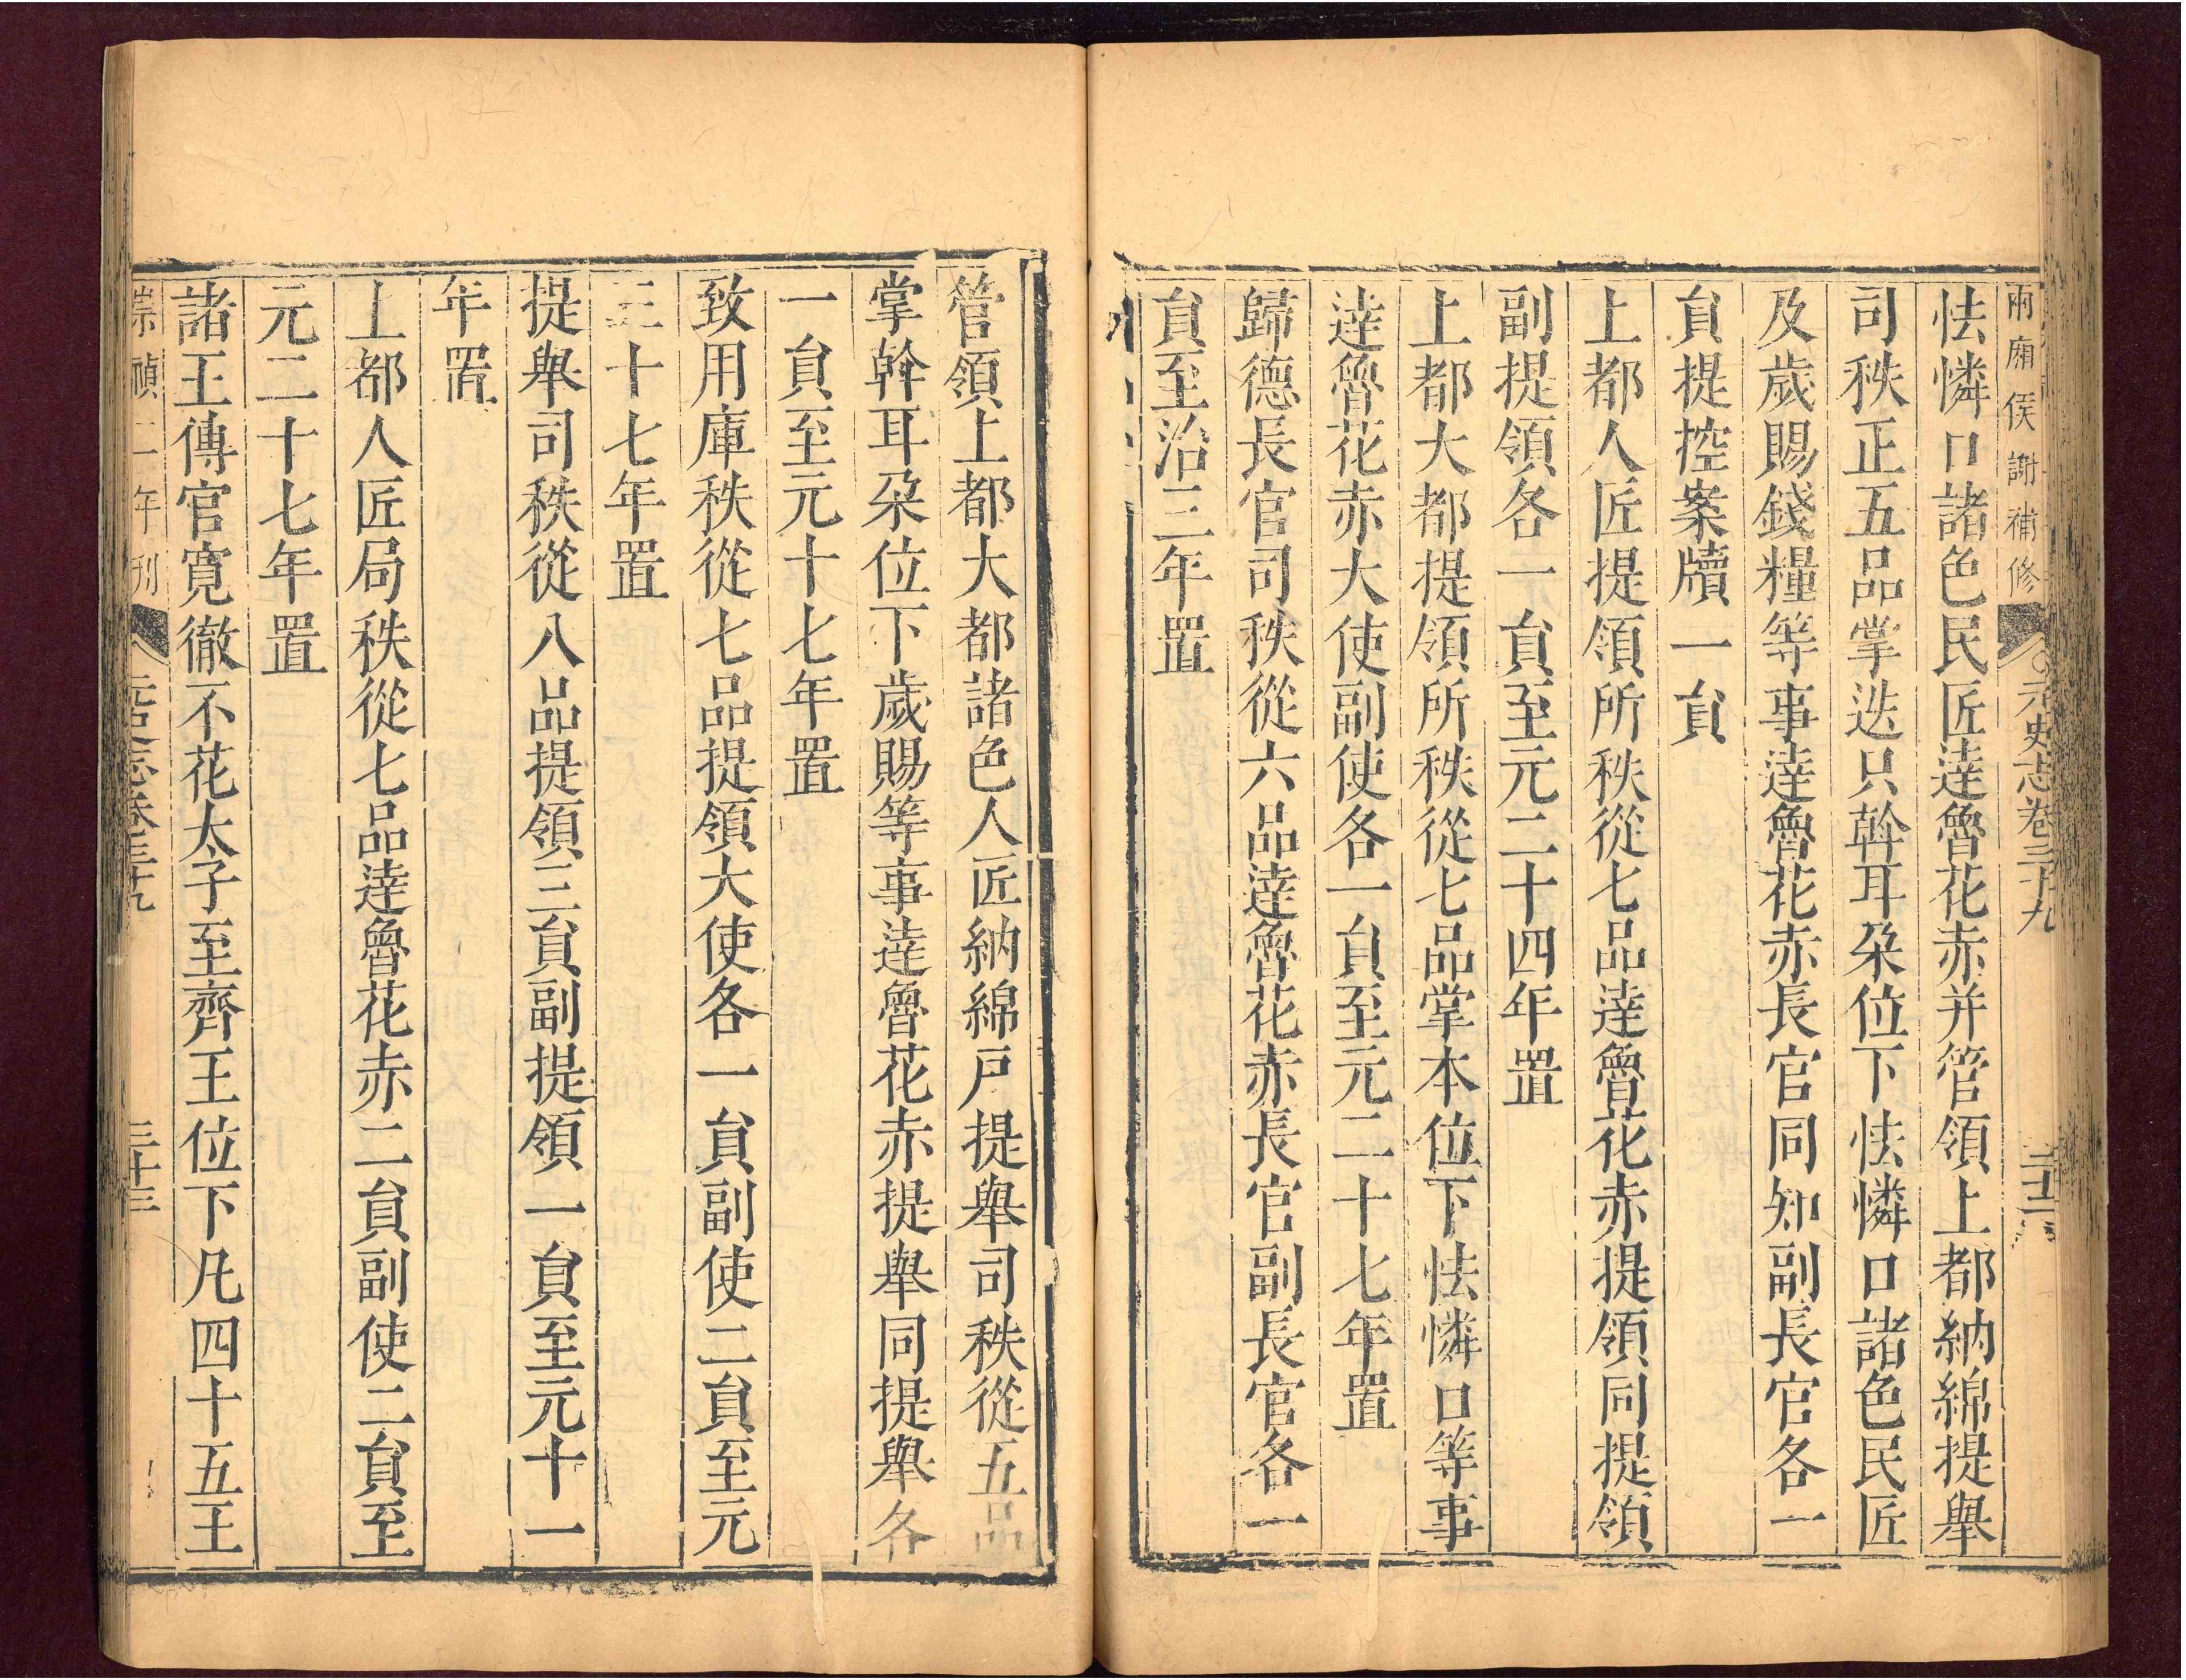 兩廂侯謝補修
元史志卷三十九
怯憐口諸色民匠達魯花赤并管領上都納綿提舉
司秩正五品掌迭只斡耳朶位下怯憐口諸色民匠
及歲賜錢糧等事達魯花赤長官同知副長官各一
員提控案牘一員
上都人匠提領所秩從七品達魯花赤提領同提領
副提領各一員至元二十四年置
上都大都提領所秩從七品掌本位下怯憐口等事
達魯花赤大使副使各一員至元二十七年置
歸德長官司秩從六品達魯花赤長官副長官各一
員至治三年置
管領上都大都諸色人匠納綿戶提舉司秩從五品
掌斡耳朶位下歲賜等事達魯花赤提舉同提舉各
一員至元十七年置
致用庫秩從七品提領大使各一員副使二員至元
三十七年置
提舉司秩從八品提領三員副提領一員至元十一
年置
上都人匠局秩從七品達魯花赤二員副使二員至
元二十七年置
諸王傅官寛徹不花太子至齊王位下凡四十五王
崇禎二年刊
元史志卷三十九
三十三